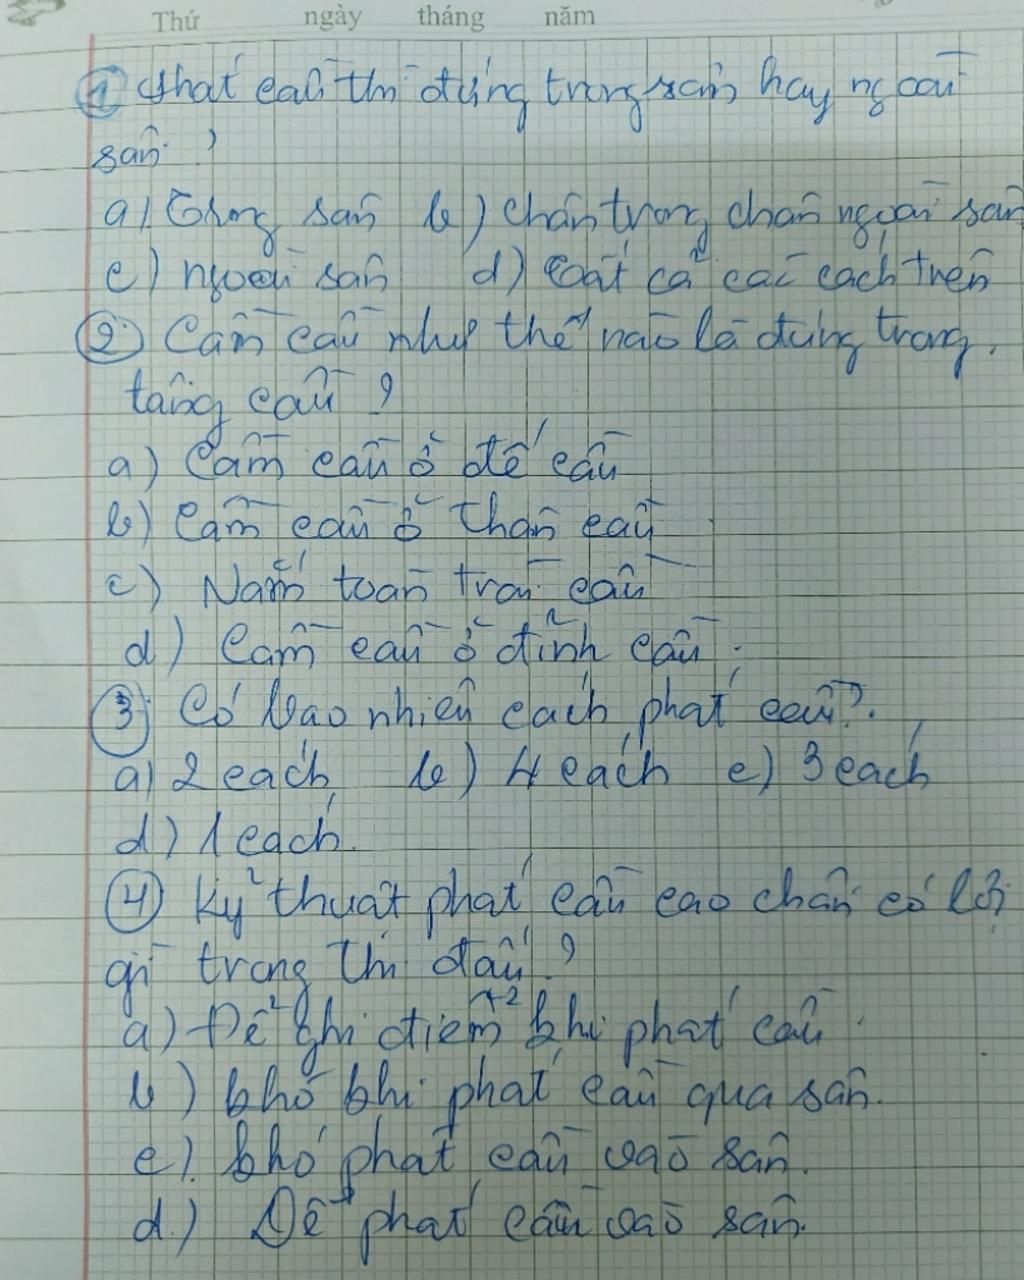 Thứ ngày tháng năm
① Phát cầu thì đứng trong sân hay ngoài
sân ?
a) Trong sân b) chân trong chân ngoài sân
c) ngoài sân d) Tất cả các cách trên
② Cầm cầu như thế nào là đúng trong
tâng cầu ?
a) Cầm cầu ở đế cầu
b) Cầm cầu ở thân cầu
c) Nắm toàn trái cầu
d) Cầm cầu ở đỉnh cầu.
③ Có bao nhiêu cách phát cầu?.
a) 2 cách b) 4 cách c) 3 cách
d) 1 cách.
④ Kỹ thuật phát cầu cao chân có lợi
gì trong thi đấu ?
a) Dễ ghi điểm khi phát cầu.
b) khó khi phát cầu qua sân.
c). khó phát cầu vào sân.
d.) Dễ phát cầu vào sân.